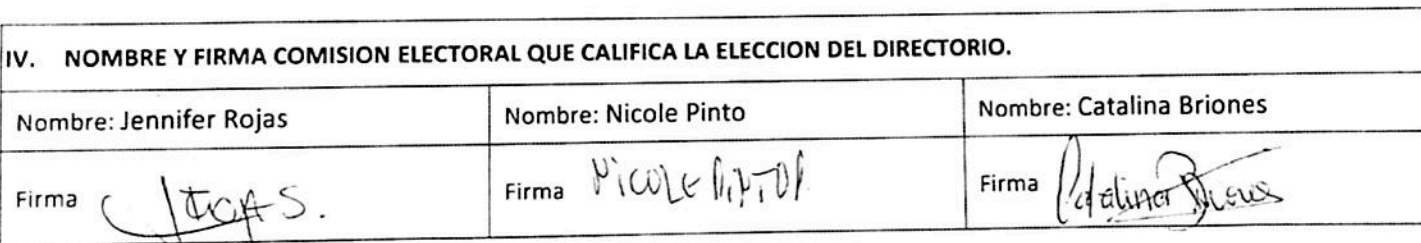 IV. NOMBRE Y FIRMA COMISION ELECTORAL QUE CALIFICA LA ELECCION DEL DIRECTORIO.
Nombre: Jennifer Rojas
Nombre: Nicole Pinto
Nombre: Catalina Briones
Firma
Firma Nicole Pinto
Firma Catalina Briones